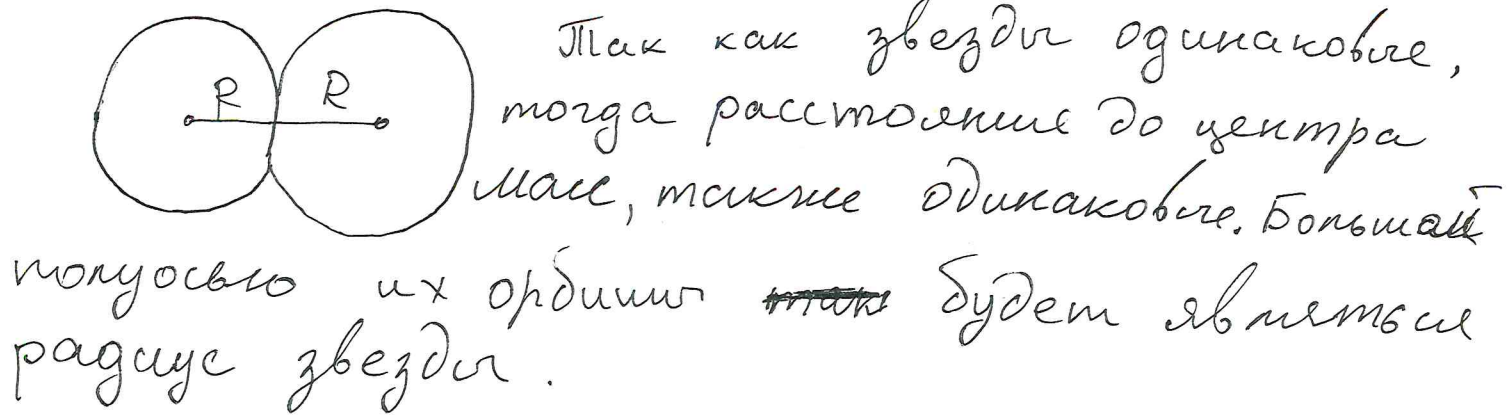 R R
Так как звезды одинаковые,
тогда расстояние до центра
масс, также одинаковые. Большой
полуосью их орбиты будет являться
радиус звезды.